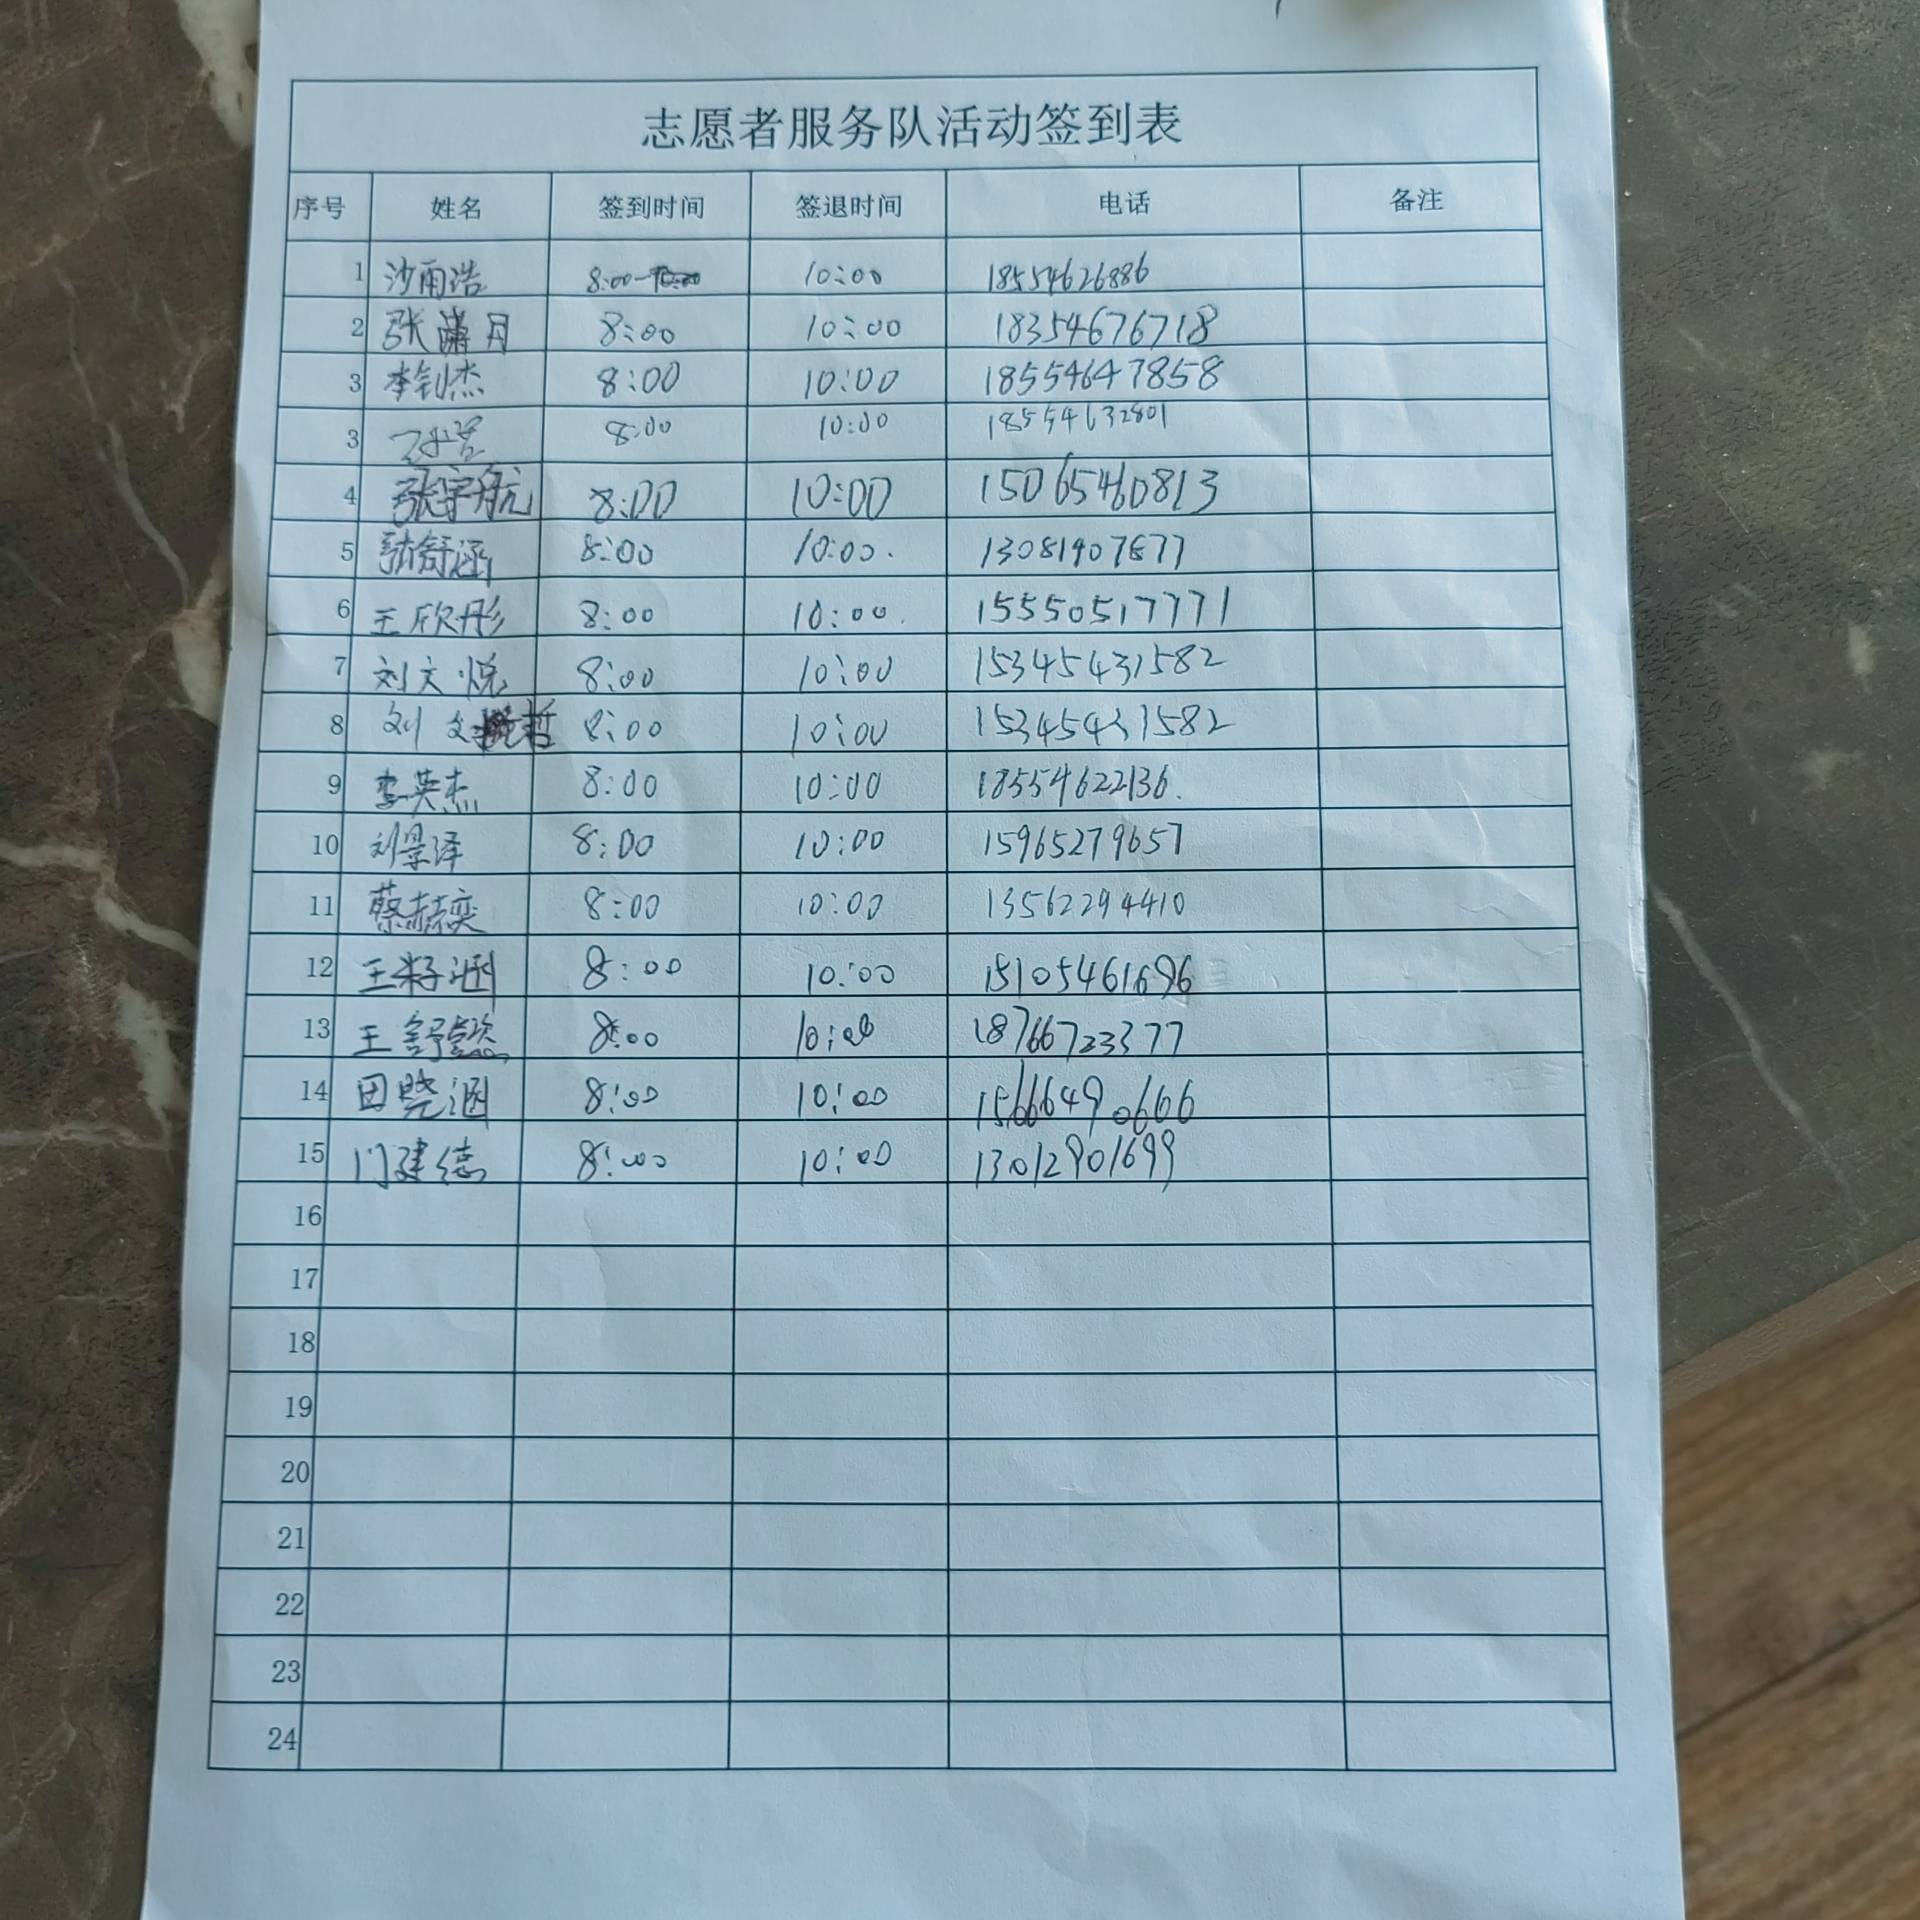 志愿者服务队活动签到表
序号 姓名 签到时间 签退时间 电话 备注
1 沙雨浩 8:00 10:00 18554626886
2 张潇月 8:00 10:00 18354676718
3 李钊杰 8:00 10:00 18554647858
3 8:00 10:00 18554632801
4 张宇航 8:00 10:00 15065460813
5 张舒涵 8:00 10:00. 13081907677
6 王欣彤 8:00 10:00. 15550517771
7 刘文悦 8:00 10:00 15345431582
8 刘文哲 8:00 10:00 15345431582
9 李英杰 8:00 10:00 18554622136.
10 刘景泽 8:00 10:00 15965279657
11 蔡赫奕 8:00 10:00 13562294410
12 王籽涵 8:00 10:00 15105461696
13 王舒懿 8:00 10:00 18766723377
14 田晓涵 8:00 10:00 15666490666
15 门建德 8:00 10:00 13012901699
16
17
18
19
20
21
22
23
24